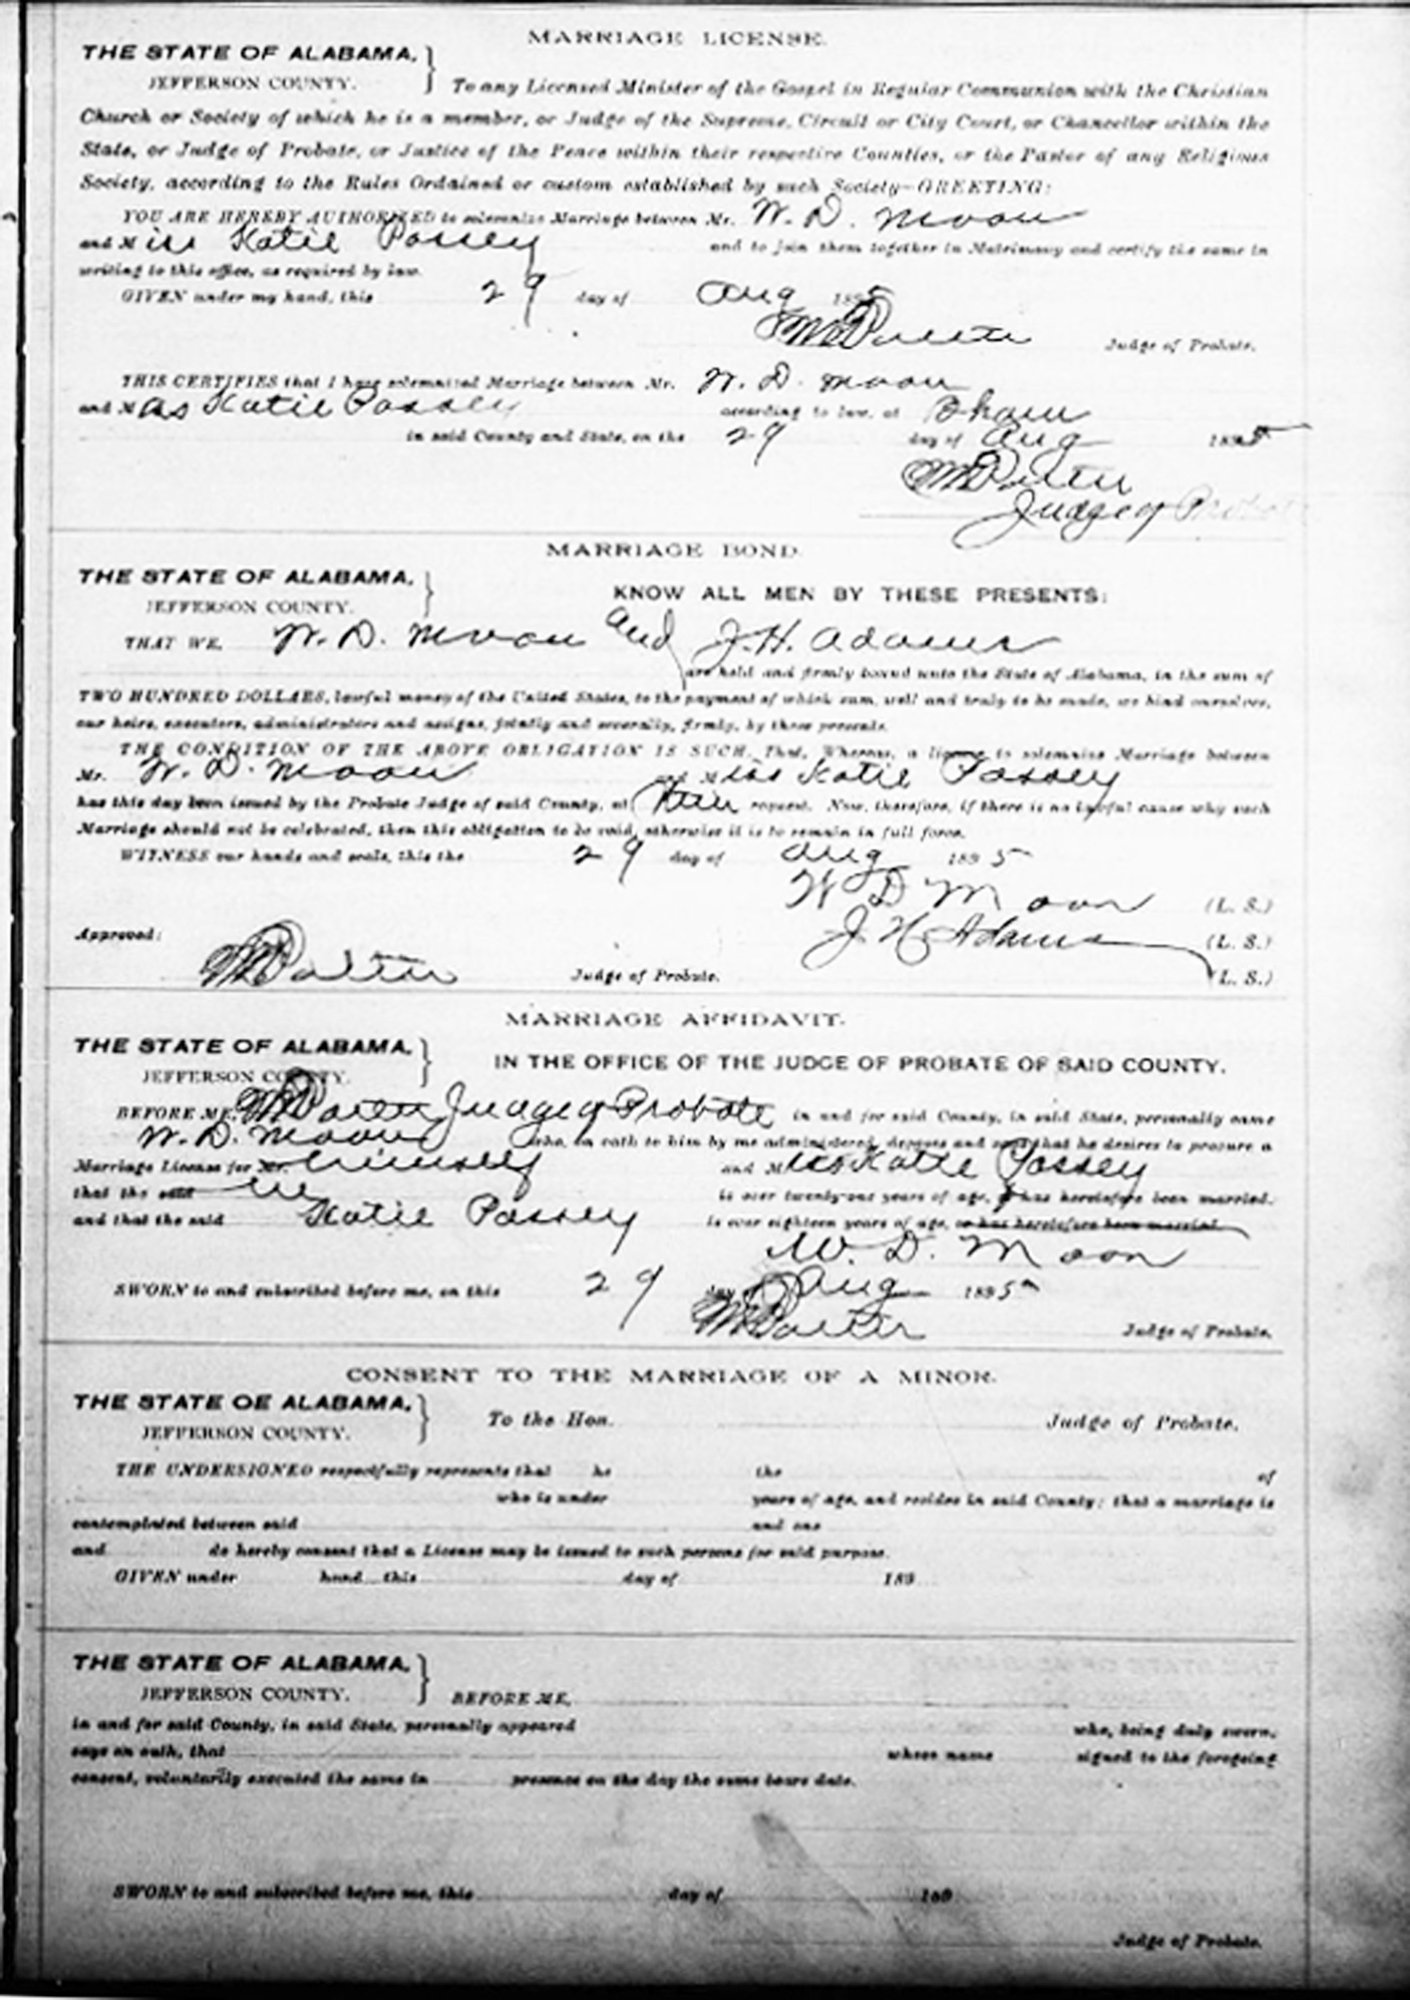 MARRIAGE LICENSE.
THE STATE OF ALABAMA,
JEFFERSON COUNTY.
To any Licensed Minister of the Gospel in Regular Communion with the Christian
Church or Society of which he is a member, or Judge of the Supreme, Circuit or City Court, or Chancellor within the
State, or Judge of Probate, or Justice of the Peace within their respective Counties, or the Pastor of any Religious
Society, according to the Rules Ordained or custom established by such Society—GREETING:
YOU ARE HEREBY AUTHORIZED to solemnize Marriage between Mr. W. D. Moon
and Miss Katie Possey and to join them together in Matrimony and certify the same in
writing to this office, as required by law.
GIVEN under my hand, this 29 day of Aug 1895
Judge of Probate.
THIS CERTIFIES that I have solemnized Marriage between Mr. W. D. Moon
and M Katie Possey according to law, at Bham
in said County and State, on the 29 day of Aug 1895
Judge of Probate
MARRIAGE BOND.
THE STATE OF ALABAMA,
JEFFERSON COUNTY.
KNOW ALL MEN BY THESE PRESENTS:
THAT WE, W. D. Moon and J. H. Adams
are held and firmly bound unto the State of Alabama, in the sum of
TWO HUNDRED DOLLARS, lawful money of the United States, to the payment of which sum, well and truly to be made, we bind ourselves,
our heirs, executors, administrators and assigns, jointly and severally, firmly, by these presents.
THE CONDITION OF THE ABOVE OBLIGATION IS SUCH, That, Whereas, a license to solemnize Marriage between
Mr. W. D. Moon and Miss Katie Possey
has this day been issued by the Probate Judge of said County, at their request. Now, therefore, if there is no lawful cause why such
Marriage should not be celebrated, then this obligation to be void, otherwise it is to remain in full force.
WITNESS our hands and seals, this the 29 day of Aug 1895
W D Moon (L. S.)
J H Adams (L. S.)
(L. S.)
Approved:
Judge of Probate.
MARRIAGE AFFIDAVIT.
THE STATE OF ALABAMA,
JEFFERSON COUNTY.
IN THE OFFICE OF THE JUDGE OF PROBATE OF SAID COUNTY.
BEFORE ME, Judge of Probate in and for said County, in said State, personally came
W. D. Moon who, on oath to him by me administered, deposes and says that he desires to procure a
Marriage License for Mr. himself and Miss Katie Possey
that the said he is over twenty-one years of age, or has heretofore been married.
and that the said Katie Possey is over eighteen years of age, or has heretofore been married.
W. D. Moon
SWORN to and subscribed before me, on this 29 day of Aug 1895
Judge of Probate.
CONSENT TO THE MARRIAGE OF A MINOR.
THE STATE OE ALABAMA,
JEFFERSON COUNTY.
To the Hon. Judge of Probate.
THE UNDERSIGNED respectfully represents that he the of
who is under years of age, and resides in said County; that a marriage is
contemplated between said and one
and do hereby consent that a License may be issued to such persons for said purpose.
GIVEN under hand this day of 189
THE STATE OF ALABAMA,
JEFFERSON COUNTY.
BEFORE ME,
in and for said County, in said State, personally appeared who, being duly sworn,
says on oath, that whose name signed to the foregoing
consent, voluntarily executed the same in presence on the day the same bears date.
SWORN to and subscribed before me, this day of 189
Judge of Probate.